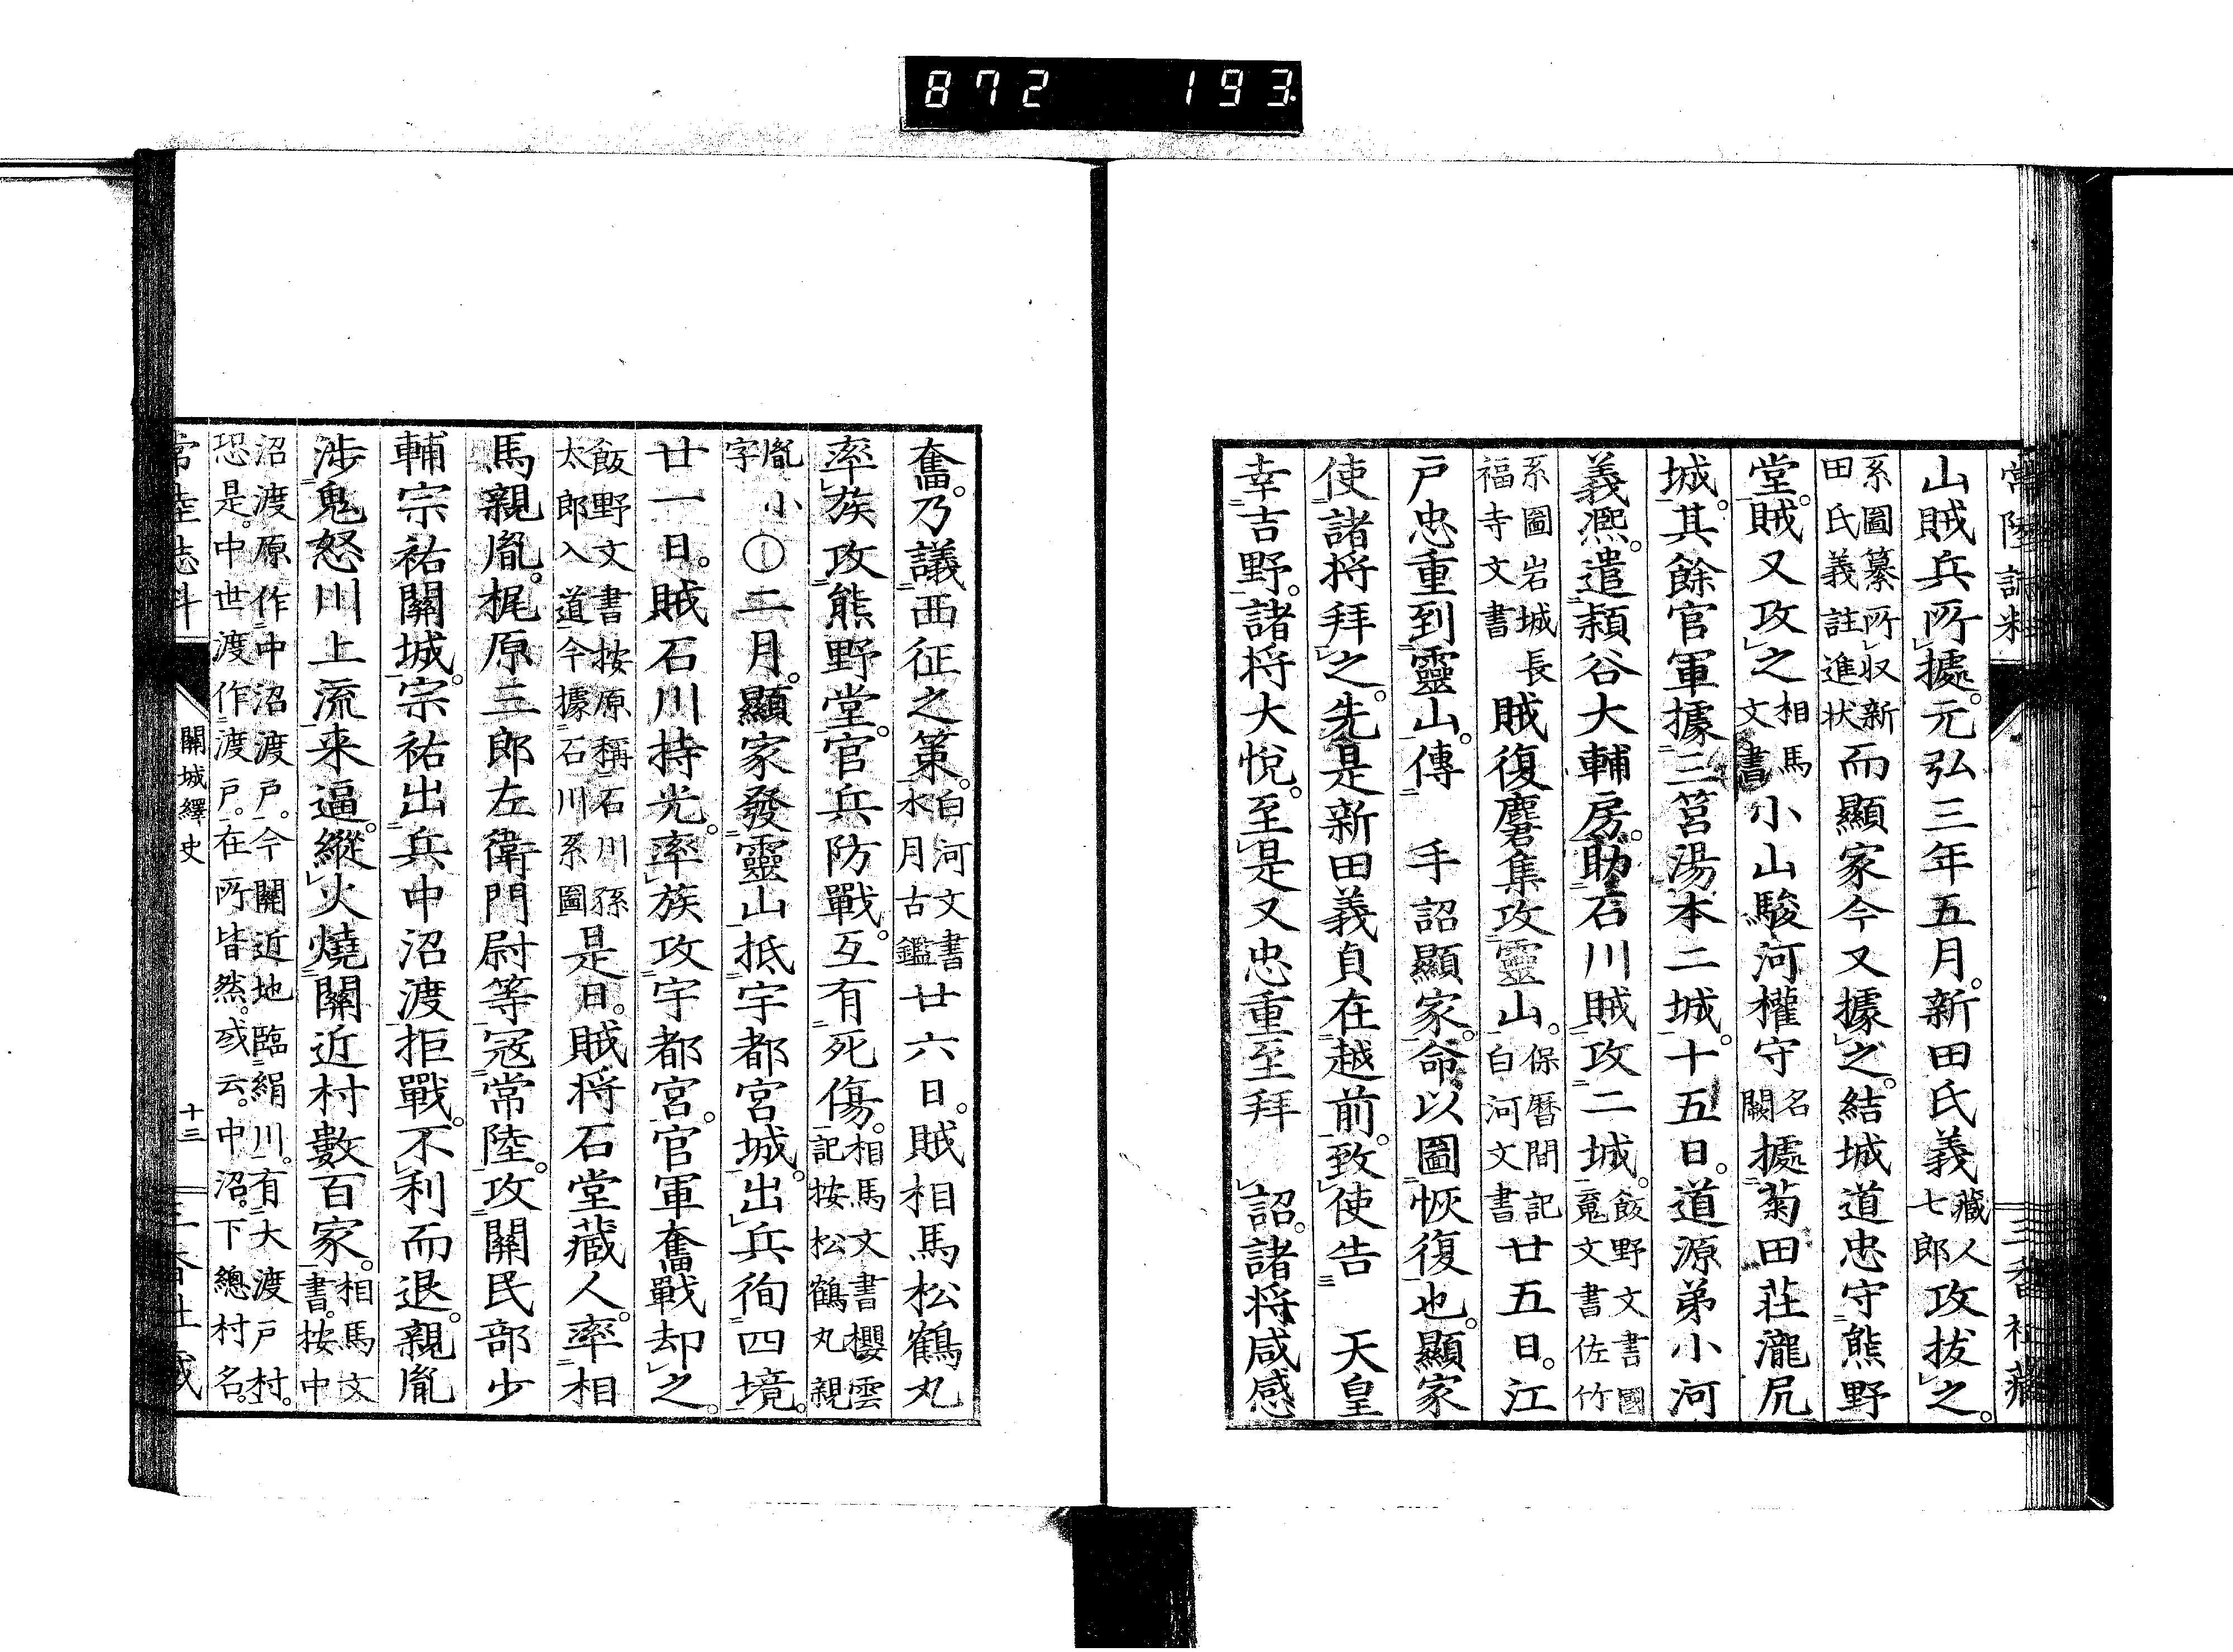 872 193.
山賊兵所據。元弘三年五月。新田氏義藏人七郎攻拔之。
系圖纂所收新田氏義註進状而顯家今又據之。結城道忠守熊野
堂。賊又攻之相馬文書小山駿河權守名闕據菊田莊瀧尻
城。其餘官軍據三筥湯本二城。十五日。道源弟小河
義凞。遣頴谷大輔房。助石川賊攻二城。飯野文書國魂文書佐竹
系圖岩城長福寺文書賊復麕集攻靈山。保曆間記白河文書廿五日。江
戸忠重到靈山。傳 手詔顯家。命以圖恢復也。顯家
使諸将拜之。先是新田義貞在越前。致使告 天皇
幸吉野。諸将大悅。至是又忠重至拜 詔。諸将咸感
奮。乃議西征之策。白河文書水月古鑑廿六日。賊相馬松鶴丸
率族攻熊野堂。官兵防戰。互有死傷。相馬文書櫻雲記按松鶴丸親
胤小字○二月。顯家發靈山抵宇都宮城。出兵徇四境。
廿一日。賊石川持光。率族攻宇都宮。官軍奮戰却之。
飯野文書按原稱石川孫太郎入道今據石川系圖是日。賊将石堂藏人。率相
馬親胤。梶原三郎左衛門尉等冦常陸。攻關民部少
輔宗祐關城。宗祐出兵中沼渡拒戰。不利而退。親胤
涉鬼怒川上流来逼。縱火燒關近村數百家。相馬文書。按中
沼渡原作中沼渡戸。今關近地臨絹川。有大渡戸村。
恐是。中世渡作渡戸。在所皆然。或云。中沼。下總村名。
關城繹史 十三